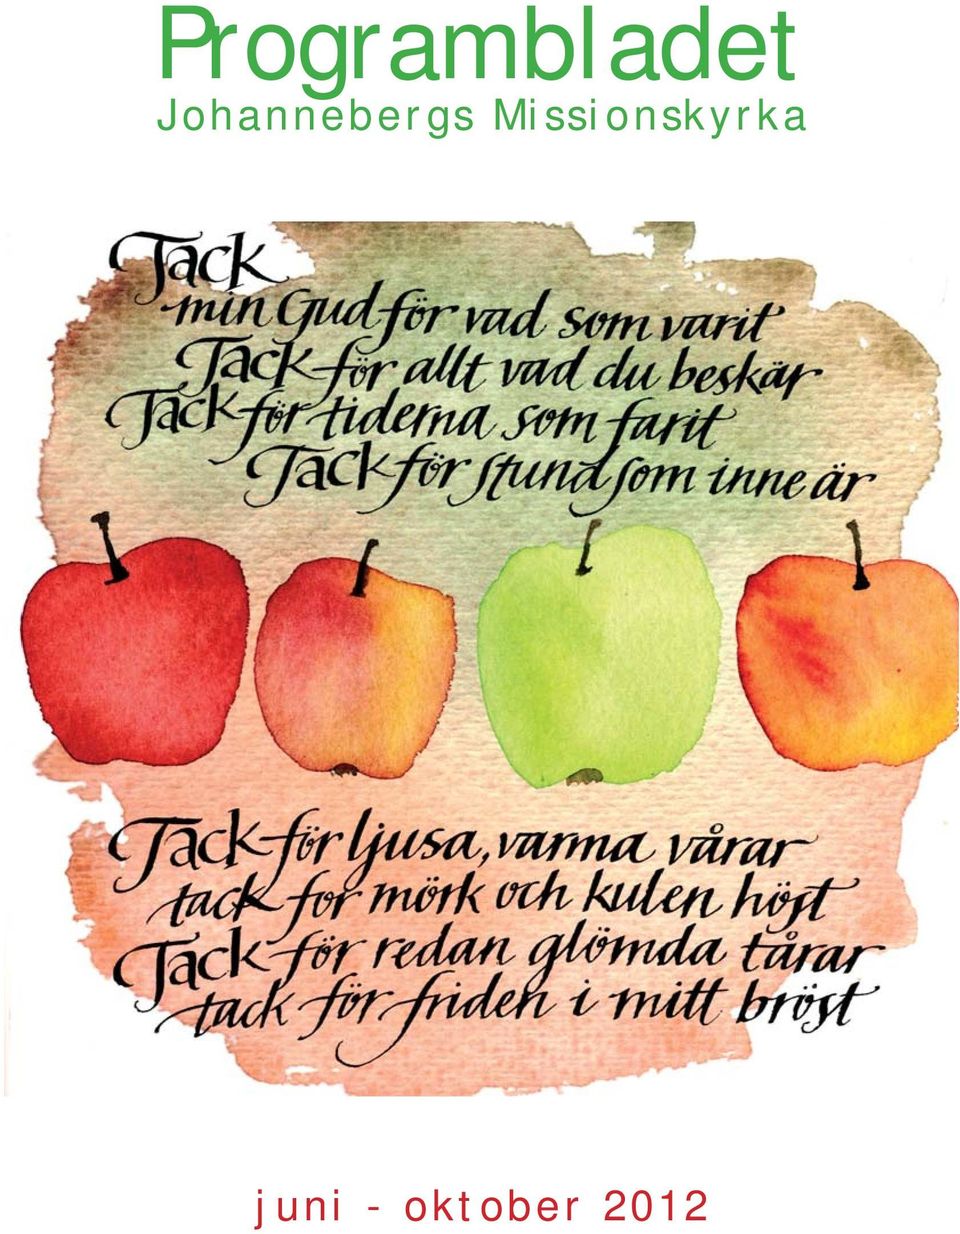 Programbladet
Johannebergs Missionskyrka
Tack
min Gud för vad som varit
Tack för allt vad du beskär
Tack för tiderna som farit
Tack för stund som inne är
Tack för ljusa, varma vårar
tack for mörk och kulen höst
Tack för redan glömda tårar
tack för friden i mitt bröst
juni - oktober 2012